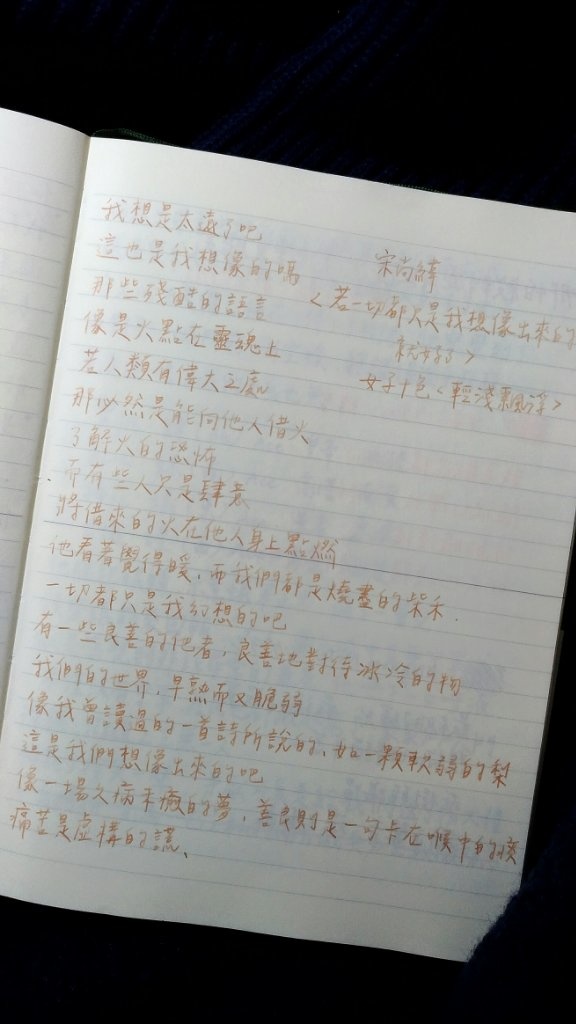 我想是太遠了吧
這也是我想像的嗎
那些殘酷的語言
像是火點在靈魂上
若人類有偉大之處
那必然是能向他人借火
了解火的恐怖
而有些人只是肆意
將借來的火在他人身上點燃
他看著覺得暖,而我們都是燒盡的柴禾.
一切都只是我幻想的吧
有一些良善的他者,良善地對待冰冷的物
我們的世界,早熟而又脆弱
像我曾讀過的一首詩所說的、如一顆軟弱的梨
這是我們想像出來的吧
像一場久病未癒的夢,善良則是一句卡在喉中的痰
痛苦是虛構的謊、
宋尚緯
<若一切都只是我想像出來的
就好了>
女子十色<輕淺飄浮>